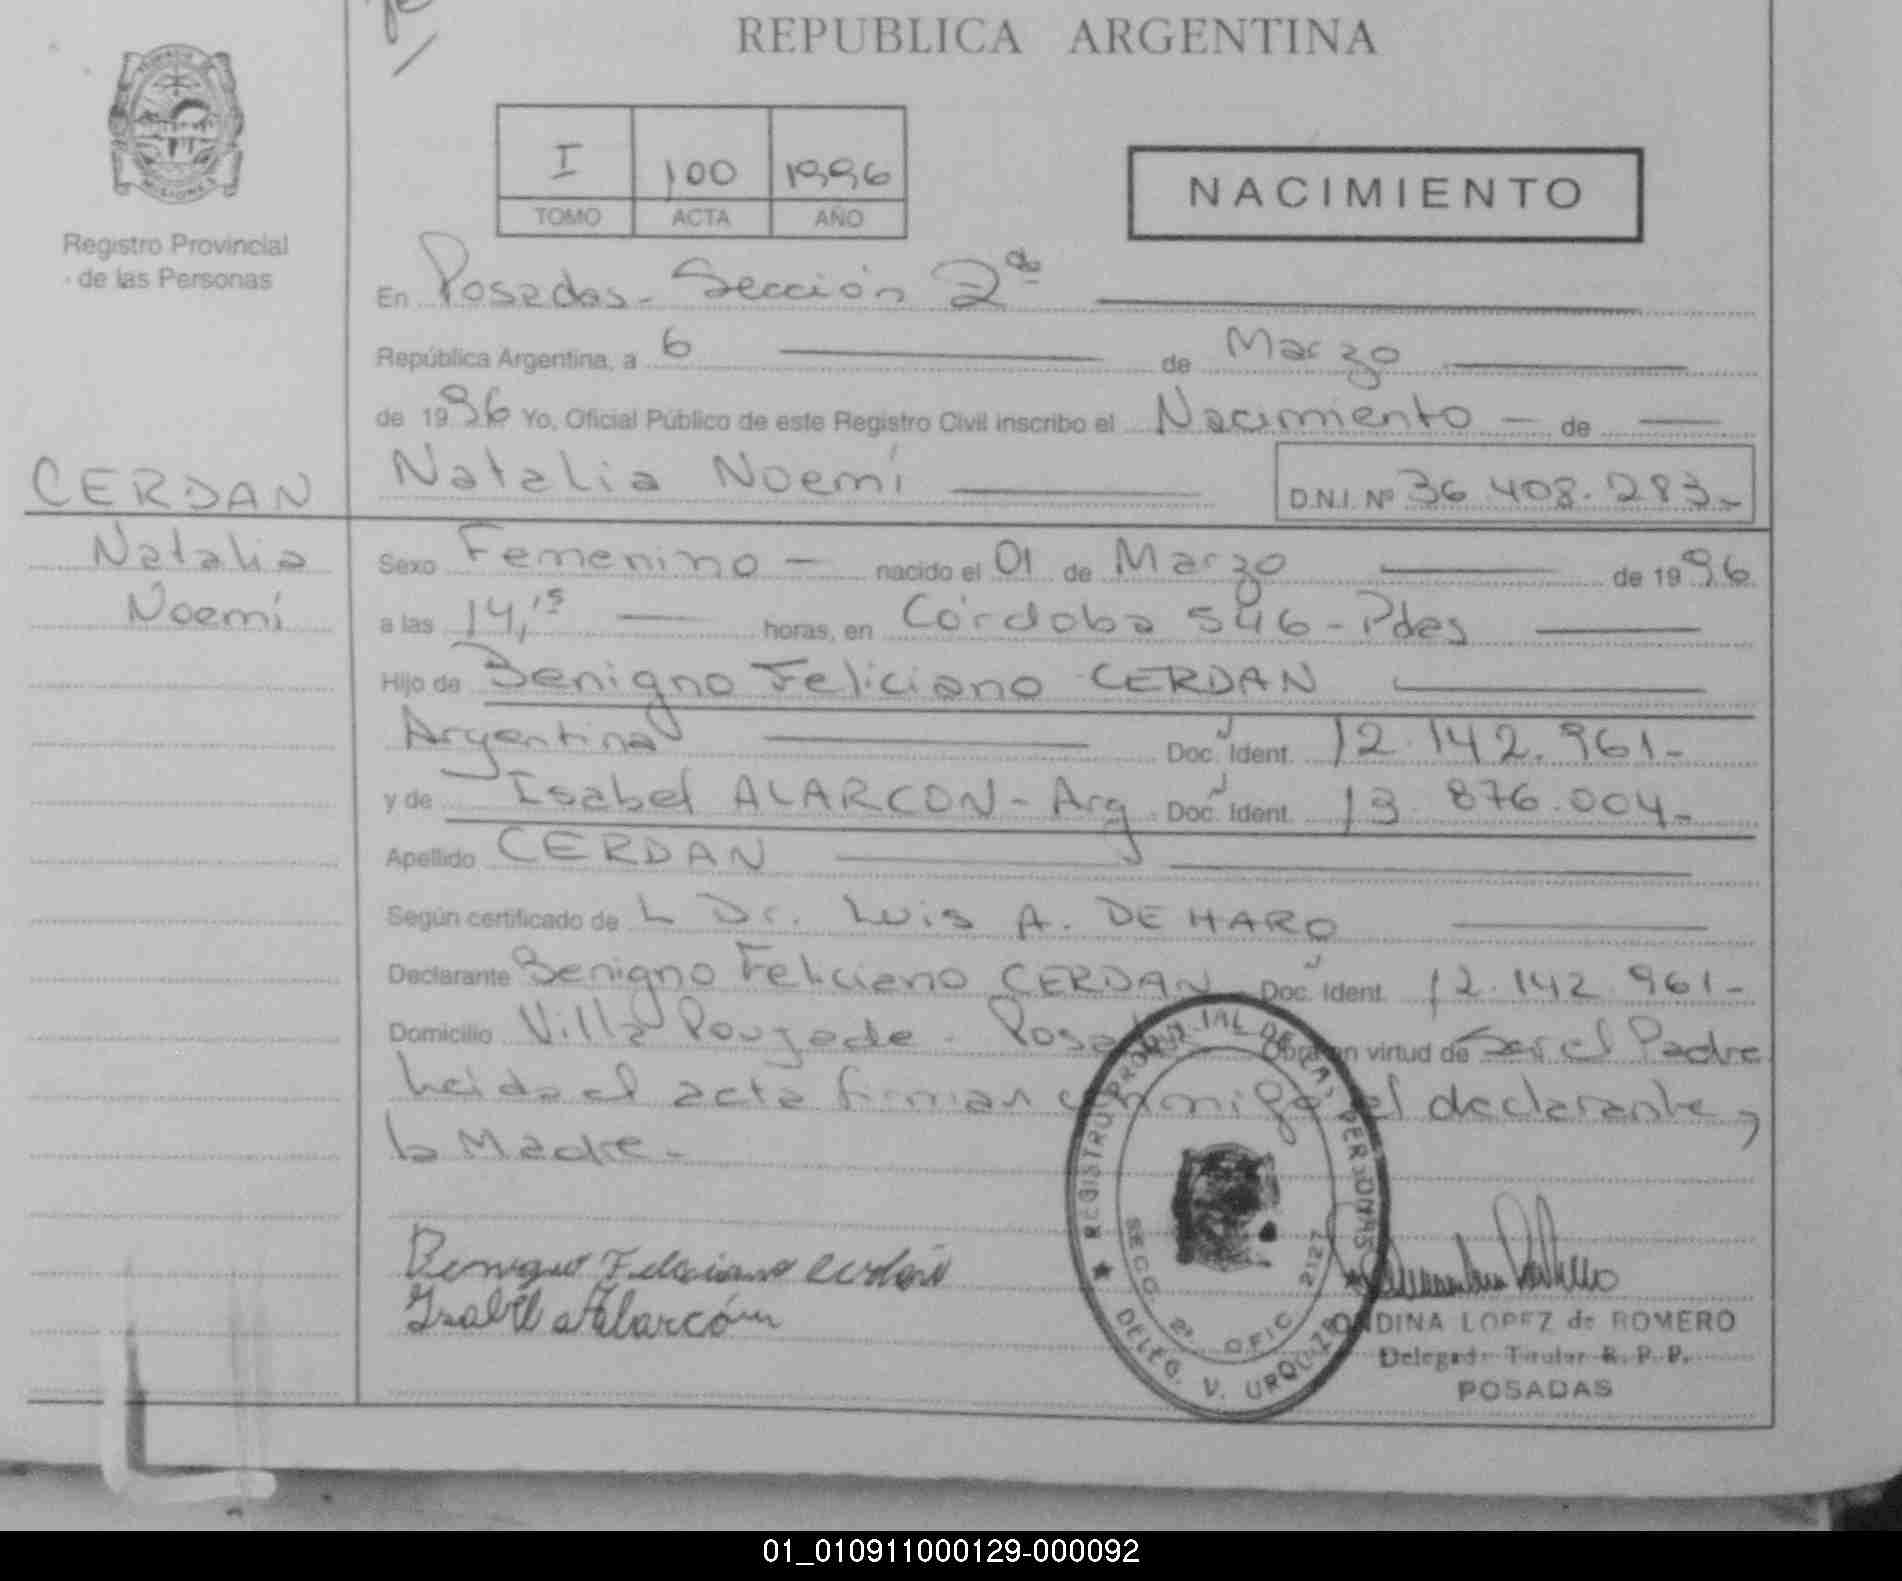 REPUBLICA ARGENTINA
MISIONES
Registro Provincial
de las Personas
I 100 1996
TOMO ACTA AÑO
NACIMIENTO
En Posadas - Sección 2da
República Argentina, a 6 de Marzo
de 1996 Yo, Oficial Público de este Registro Civil inscribo el Nacimiento - de
CERDAN Natalia Noemí D.N.I. Nº 36.408.283.-
Natalia
Noemí
Sexo Femenino - nacido el 01 de Marzo de 1996
a las 14,15 horas, en Córdoba 546 - Pdas
Hijo de Benigno Feliciano CERDAN
Argentina Doc. Ident. 12.142.961-
y de Isabel ALARCON - Arg. Doc. Ident. 13.876.004-
Apellido CERDAN
Según certificado de L Dr. Luis A. DE HARO
Declarante Benigno Feliciano CERDAN Doc. Ident. 12.142.961-
Domicilio Villa Poujade - Posadas Obra en virtud de Ser el Padre
Leida el acta firman conmigo el declarante y
la Madre.-
Benigno Feliciano Cerdán
Isabel Alarcón
REGISTRO PROVINCIAL DE LAS PERSONAS
SECC. 2ª OFIC. 2127
DELEG. V. URQUIZA
ONDINA LOPEZ de ROMERO
Delegada Titular R. P. P.
POSADAS
01_010911000129-000092